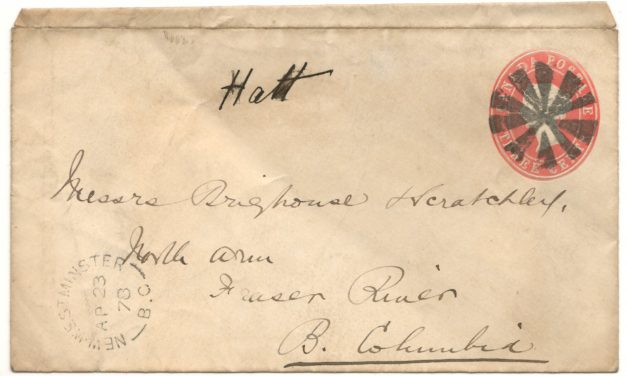 Hatt
CANADA POSTAGE
THREE CENTS
Messrs Brighouse & Scratchley,
North Arm
Fraser River
B. Columbia
NEW WESTMINSTER
AP 23
78
B.C